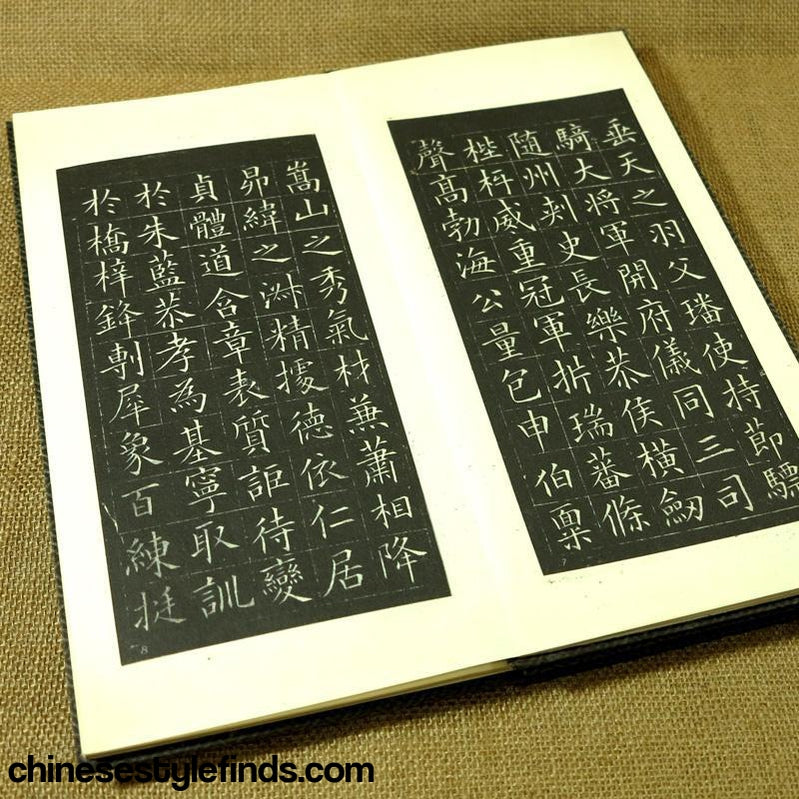 垂天之羽父璠使持節驃
騎大將軍開府儀同三司
随州刾史長樂恭侯橫劒
梐枑威重冠軍折瑞蕃條
聲髙勃海公量包申伯稟
嵩山之秀氣材蒹蕭相降
昴緯之淋精據德依仁居
貞體道含章表質詎待變
於朱藍恭孝為基寧取訓
於橋梓鋒剸犀象百練挺
8
chinesestylefinds.com